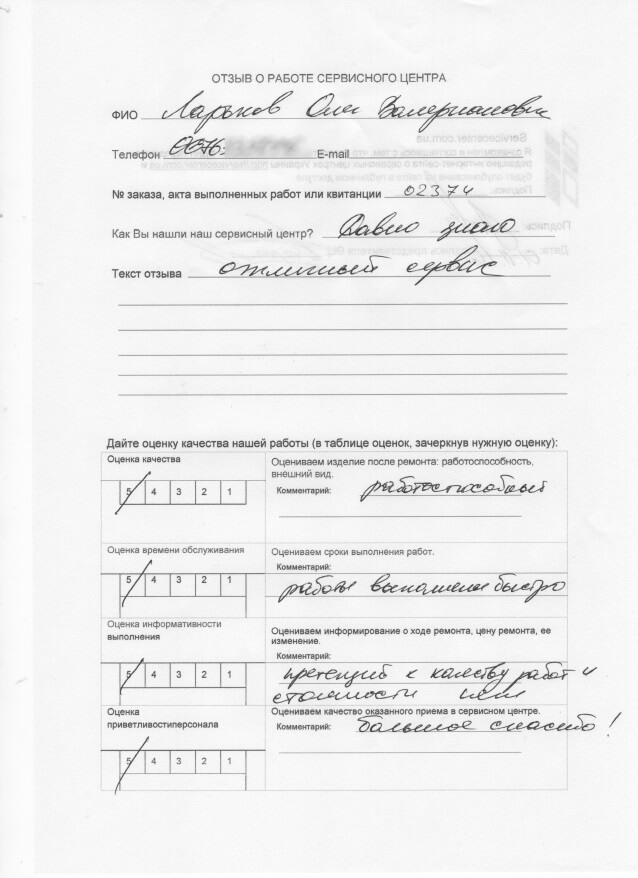 ОТЗЫВ О РАБОТЕ СЕРВИСНОГО ЦЕНТРА
ФИО Ларьков Олег Валерианович
Телефон E-mail
№ заказа, акта выполненных работ или квитанции 02374
Как Вы нашли наш сервисный центр? Давно знаю
Текст отзыва отличный сервис
Дайте оценку качества нашей работы (в таблице оценок, зачеркнув нужную оценку):
Оценка качества
5 4 3 2 1
Оцениваем изделие после ремонта: работоспособность,
внешний вид.
Комментарий: работоспособный
Оценка времени обслуживания
5 4 3 2 1
Оцениваем сроки выполнения работ.
Комментарий:
работы выполнены быстро
Оценка информативности
выполнения
5 4 3 2 1
Оцениваем информирование о ходе ремонта, цену ремонта, ее
изменение.
Комментарий:
претензий к качеству работ и
стоимости нет
Оценка
приветливостиперсонала
5 4 3 2 1
Оцениваем качество оказанного приема в сервисном центре.
Комментарий: большое спасибо!